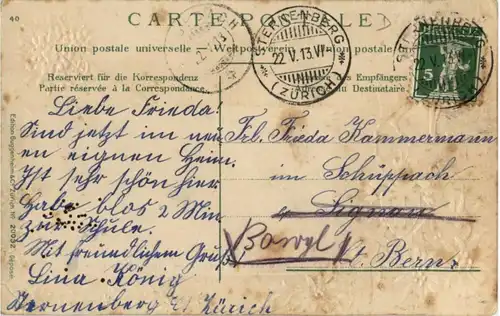 40
CARTE POSTALE
Union postale universelle. — Weltpostverein. — Unione postale
Reserviert für die Korrespondenz
Partie réservée à la Correspondance.
des Empfängers
du Destinataire
STERNENBERG
22.V.13.VI
(ZÜRICH)
5
Liebe Frieda!
Sind jetzt im neu
en eignen Heim.
Ist sehr schön hier
Habe blos 2 Min
zur Schule.
Mit freundlichem Gruß
Lina König
Sternenberg Kt. Zürich
Frl. Frieda Kammermann
im Schüppach
Signau
Bowyl
Kt. Bern